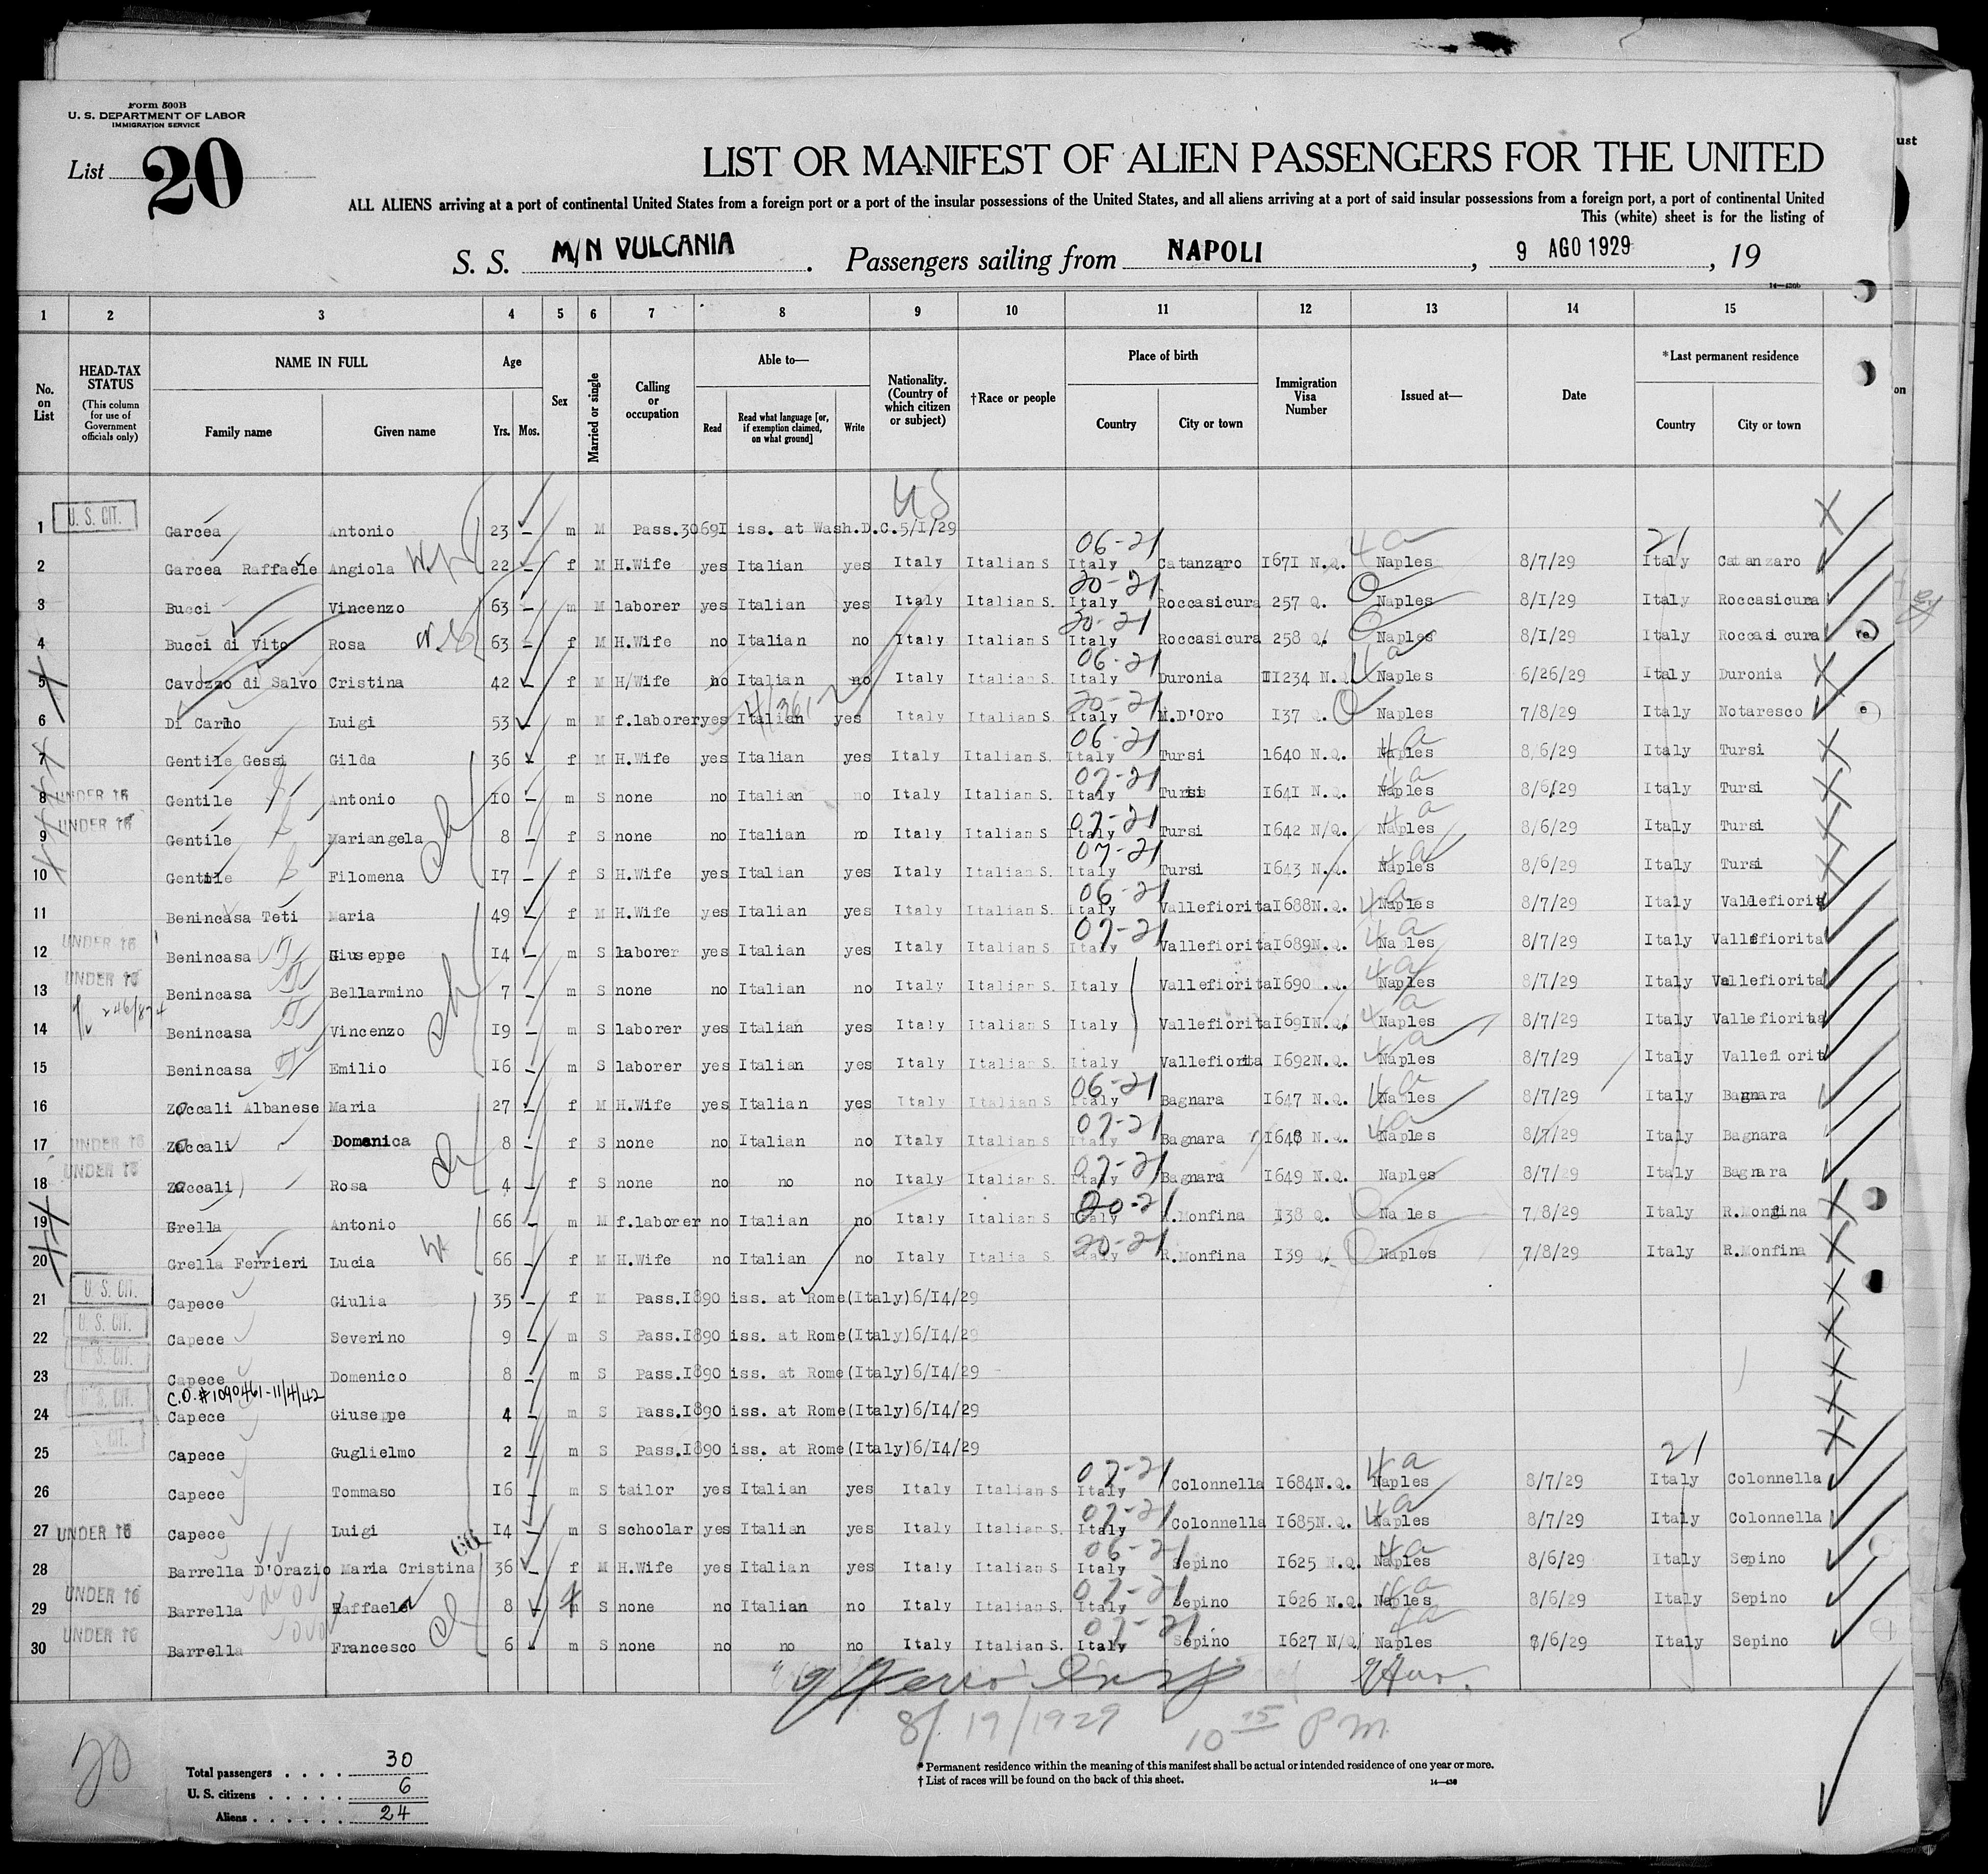 Form 500B
U. S. DEPARTMENT OF LABOR
IMMIGRATION SERVICE
List 20
LIST OR MANIFEST OF ALIEN PASSENGERS FOR THE UNITED
ALL ALIENS arriving at a port of continental United States from a foreign port or a port of the insular possessions of the United States, and all aliens arriving at a port of said insular possessions from a foreign port, a port of continental United
This (white) sheet is for the listing of
S. S. M/N VULCANIA. Passengers sailing from NAPOLI, 9 AGO 1929, 19
1 2 3 4 5 6 7 8 9 10 11 12 13 14 15
No. on List
HEAD-TAX STATUS (This column for use of Government officials only)
NAME IN FULL Family name Given name
Age Yrs. Mos.
Sex
Married or single
Calling or occupation
Able to— Read Read what language [or, if exemption claimed, on what ground] Write
Nationality. (Country of which citizen or subject)
†Race or people
Place of birth Country City or town
Immigration Visa Number
Issued at—
Date
*Last permanent residence Country City or town
US
1 U. S. CIT. Garcea Antonio 23 – m M Pass.30691 iss. at Wash.D.C.5/1/29
06-21 4a 21
2 Garcea Raffaele Angiola 22 – f M H.Wife yes Italian yes Italy Italian S Italy Catanzaro 1671 N.Q. Naples 8/7/29 Italy Catanzaro
20-21
3 Bucci Vincenzo 63 – m M laborer yes Italian yes Italy Italian S. Italy Roccasicura 257 Q. Naples 8/1/29 Italy Roccasicura
20-21
4 Bucci di Vito Rosa 63 – f M H.Wife no Italian no Italy Italian S. Italy Roccasicura 258 Q. Naples 8/1/29 Italy Roccasicura
06-21 4a
5 Cavozzo di Salvo Cristina 42 – f M H/Wife no Italian no Italy Italian S. Italy Duronia 11234 N.Q. Naples 6/26/29 Italy Duronia
20-21
6 Di Carlo Luigi 53 – m M f.laborer yes Italian yes Italy Italian S. Italy M.D'Oro 137 Q. Naples 7/8/29 Italy Notaresco
06-21 4a
7 Gentile Gessi Gilda 36 – f M H.Wife yes Italian yes Italy Italian S. Italy Tursi 1640 N.Q. Naples 8/6/29 Italy Tursi
07-21 4a
8 UNDER 16 Gentile Antonio 10 – m S none no Italian no Italy Italian S. Italy Tursi 1641 N.Q. Naples 8/6/29 Italy Tursi
07-21 4a
9 UNDER 16 Gentile Mariangela 8 – f S none no Italian no Italy Italian S Italy Tursi 1642 N/Q. Naples 8/6/29 Italy Tursi
07-21 4a
10 Gentile Filomena 17 – f S H.Wife yes Italian yes Italy Italian S. Italy Tursi 1643 N.Q. Naples 8/6/29 Italy Tursi
06-21 4a
11 Benincasa Teti Maria 49 – f M H.Wife yes Italian yes Italy Italian S. Italy Vallefiorita 1688N.Q. Naples 8/7/29 Italy Vallefiorit
07-21 4a
12 UNDER 16 Benincasa Giuseppe 14 – m S laborer yes Italian yes Italy Italian S Italy Vallefiorita 1689N.Q. Naples 8/7/29 Italy Vallefiorita
4a
13 UNDER 16 Benincasa Bellarmino 7 – m S none no Italian no Italy Italian S. Italy Vallefiorita 1690 .Q. Naples 8/7/29 Italy Vallefiorita
4a
14 Benincasa Vincenzo 19 – m S laborer yes Italian yes Italy Italian S Italy Vallefiorita 1691N.Q. Naples 8/7/29 Italy Vallefiorita
4a
15 Benincasa Emilio 16 – m S laborer yes Italian yes Italy Italian S. Italy Vallefiorita 1692N.Q. Naples 8/7/29 Italy Vallefiorit
06-21 4a
16 Zoccali Albanese Maria 27 – f M H.Wife yes Italian yes Italy Italian S Italy Bagnara 1647 N.Q. Naples 8/7/29 Italy Bagnara
07-21 4a
17 UNDER 16 Zoccali Domenica 8 – f S none no Italian no Italy Italian S Italy Bagnara 1648 N.Q. Naples 8/7/29 Italy Bagnara
07-21
18 UNDER 16 Zoccali Rosa 4 – f S none no no no Italy Italian S. Italy Bagnara 1649 N.Q. Naples 8/7/29 Italy Bagnara
20-21
19 Grella Antonio 66 – m M f.laborer no Italian no Italy Italian S Italy R.Monfina 138 Q. Naples 7/8/29 Italy R.Monfina
20-21
20 Grella Ferrieri Lucia 66 – f M H.Wife no Italian no Italy Italia S. Italy R.Monfina 139 Q. Naples 7/8/29 Italy R.Monfina
21 U. S. CIT. Capece Giulia 35 – f M Pass.1890 iss. at Rome(Italy)6/14/29
22 U. S. CIT. Capece Severino 9 – m S Pass.1890 iss. at Rome(Italy)6/14/29
23 U. S. CIT. Capece Domenico 8 – m S Pass.1890 iss. at Rome(Italy)6/14/29
C.O.#1090461-11/4/42
24 U. S. CIT. Capece Giuseppe 4 – m S Pass.1890 iss. at Rome(Italy)6/14/29
25 S. CIT. Capece Guglielmo 2 – m S Pass.1890 iss. at Rome(Italy)6/14/29
07-21 4a 21
26 Capece Tommaso 16 – m S tailor yes Italian yes Italy Italian S Italy Colonnella 1684N.Q. Naples 8/7/29 Italy Colonnella
07-21 4a
27 UNDER 16 Capece Luigi 14 – m S schoolar yes Italian yes Italy Italian S. Italy Colonnella 1685N.Q. Naples 8/7/29 Italy Colonnella
06-21 4a
28 Barrella D'Orazio Maria Cristina 36 – f M H.Wife yes Italian yes Italy Italian S. Italy Sepino 1625 N.Q. Naples 8/6/29 Italy Sepino
07-21 4a
29 UNDER 16 Barrella Raffaele 8 – f S none no Italian no Italy Italian S. Italy Sepino 1626 N.Q. Naples 8/6/29 Italy Sepino
07-21 4a
30 UNDER 16 Barrella Francesco 6 – m S none no no no Italy Italian S. Italy Sepino 1627 N/Q Naples 8/6/29 Italy Sepino
8/19/1929 10 15 P.M.
20
Total passengers .... 30
U. S. citizens ..... 6
Aliens ...... 24
* Permanent residence within the meaning of this manifest shall be actual or intended residence of one year or more.
† List of races will be found on the back of this sheet.
14—430